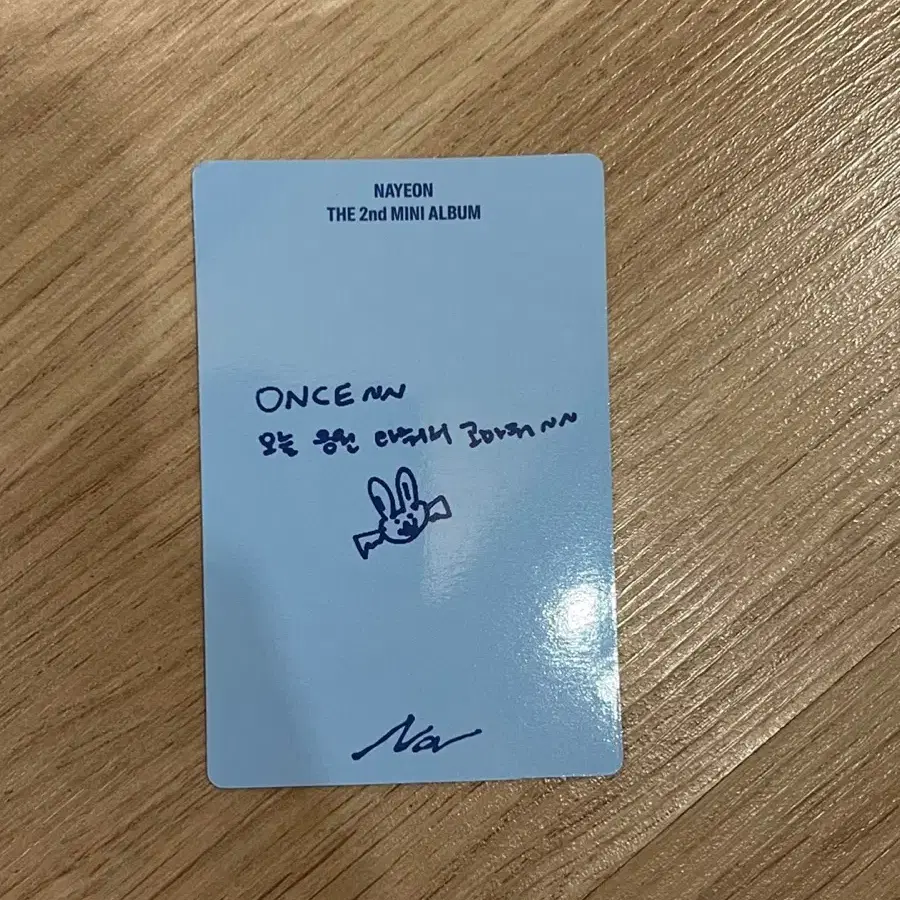 NAYEON
THE 2nd MINI ALBUM
ONCE~~
오늘 응원 와줘서 고마워~~
Na